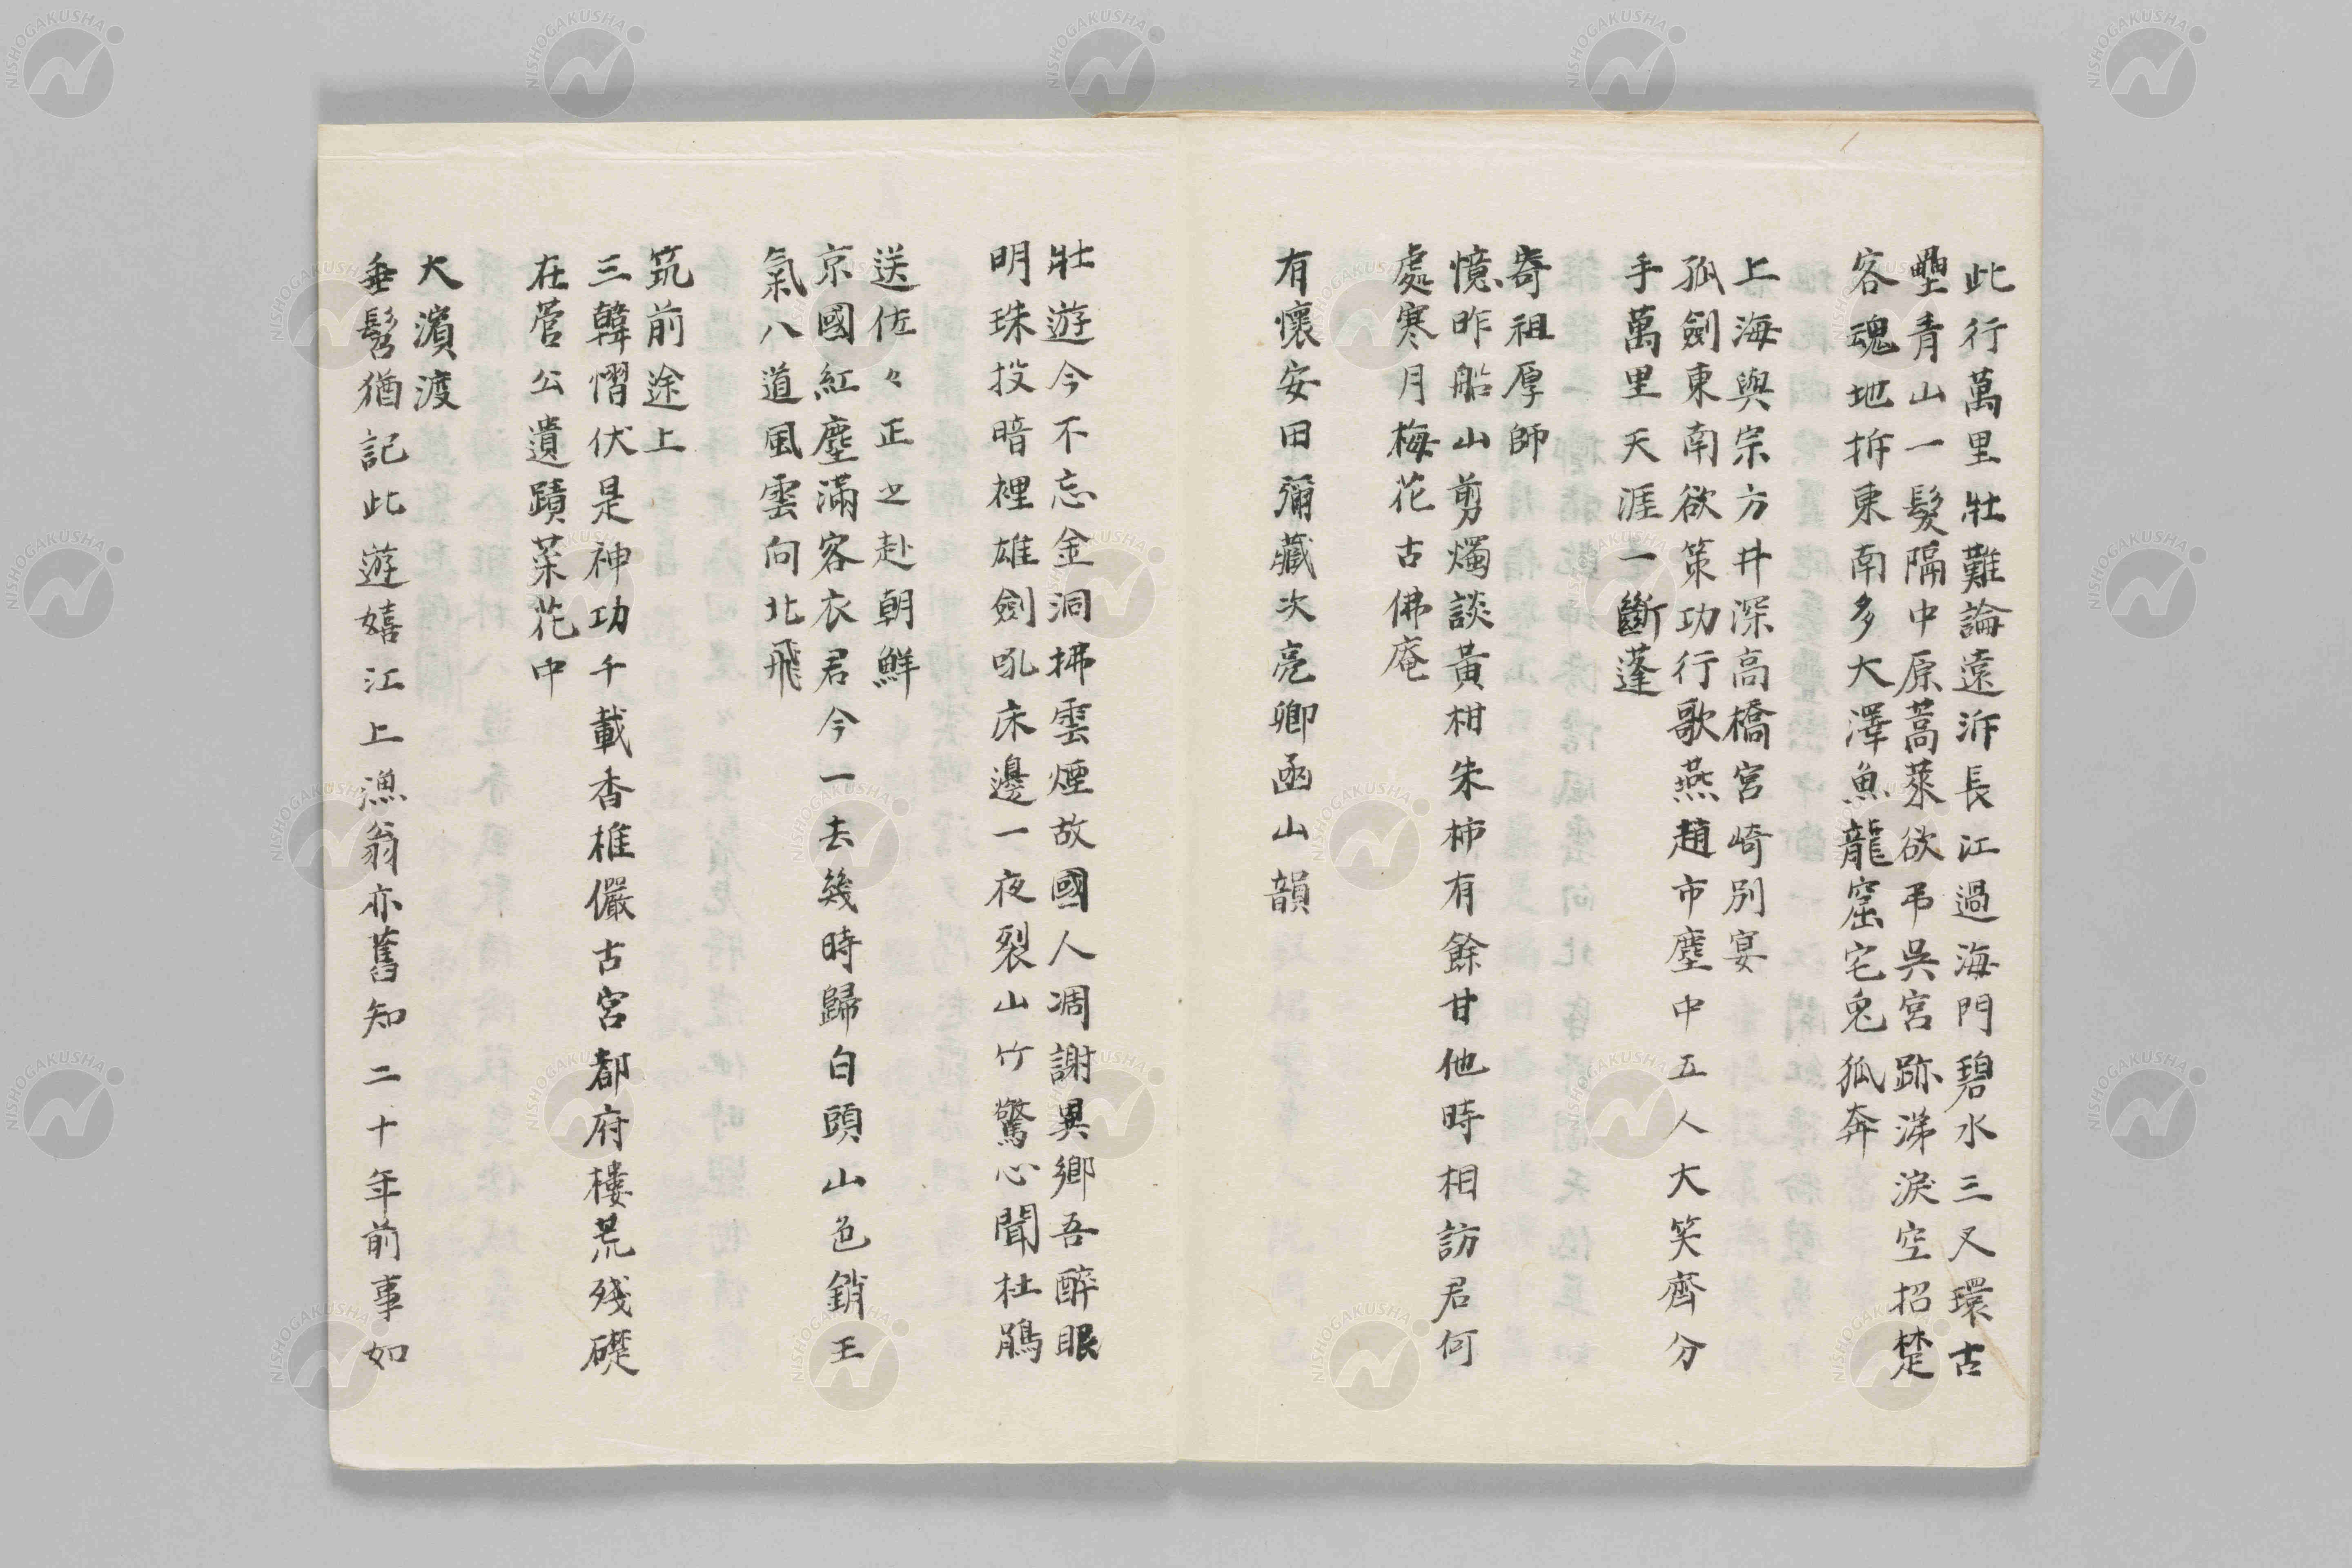 此行萬里壯難論遠泝長江過海門碧水三叉環古
壘青山一髮隔中原蒿萊欲弔吳宮跡涕淚空招楚
客魂地拆東南多大澤魚龍窟宅兎狐奔
上海與宗方井深高橋宮崎別宴
孤劍東南欲策功行歌燕趙市塵中五人大笑齊分
手萬里天涯一斷蓬
寄祖厚師
憶昨船山剪燭談黃柑朱柿有餘甘他時相訪君何
處寒月梅花古佛庵
有懷安田彌藏次亮卿函山韻
壯遊今不忘金洞拂雲煙故國人凋謝異鄉吾醉眠
明珠投暗裡雄劍吼床邊一夜裂山竹驚心聞杜鵑
送佐々正之赴朝鮮
京國紅塵滿客衣君今一去幾時歸白頭山色銷王
氣八道風雲向北飛
筑前途上
三韓慴伏是神功千載香椎儼古宮都府樓荒殘礎
在菅公遺蹟菜花中
大濱渡
垂髫猶記此遊嬉江上漁翁亦舊知二十年前事如
NISHOGAKUSHA